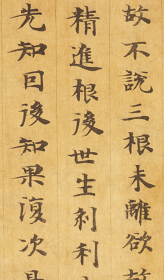 故不說三根未離欲故
精進根後世生刹利
先知因後知果復次是